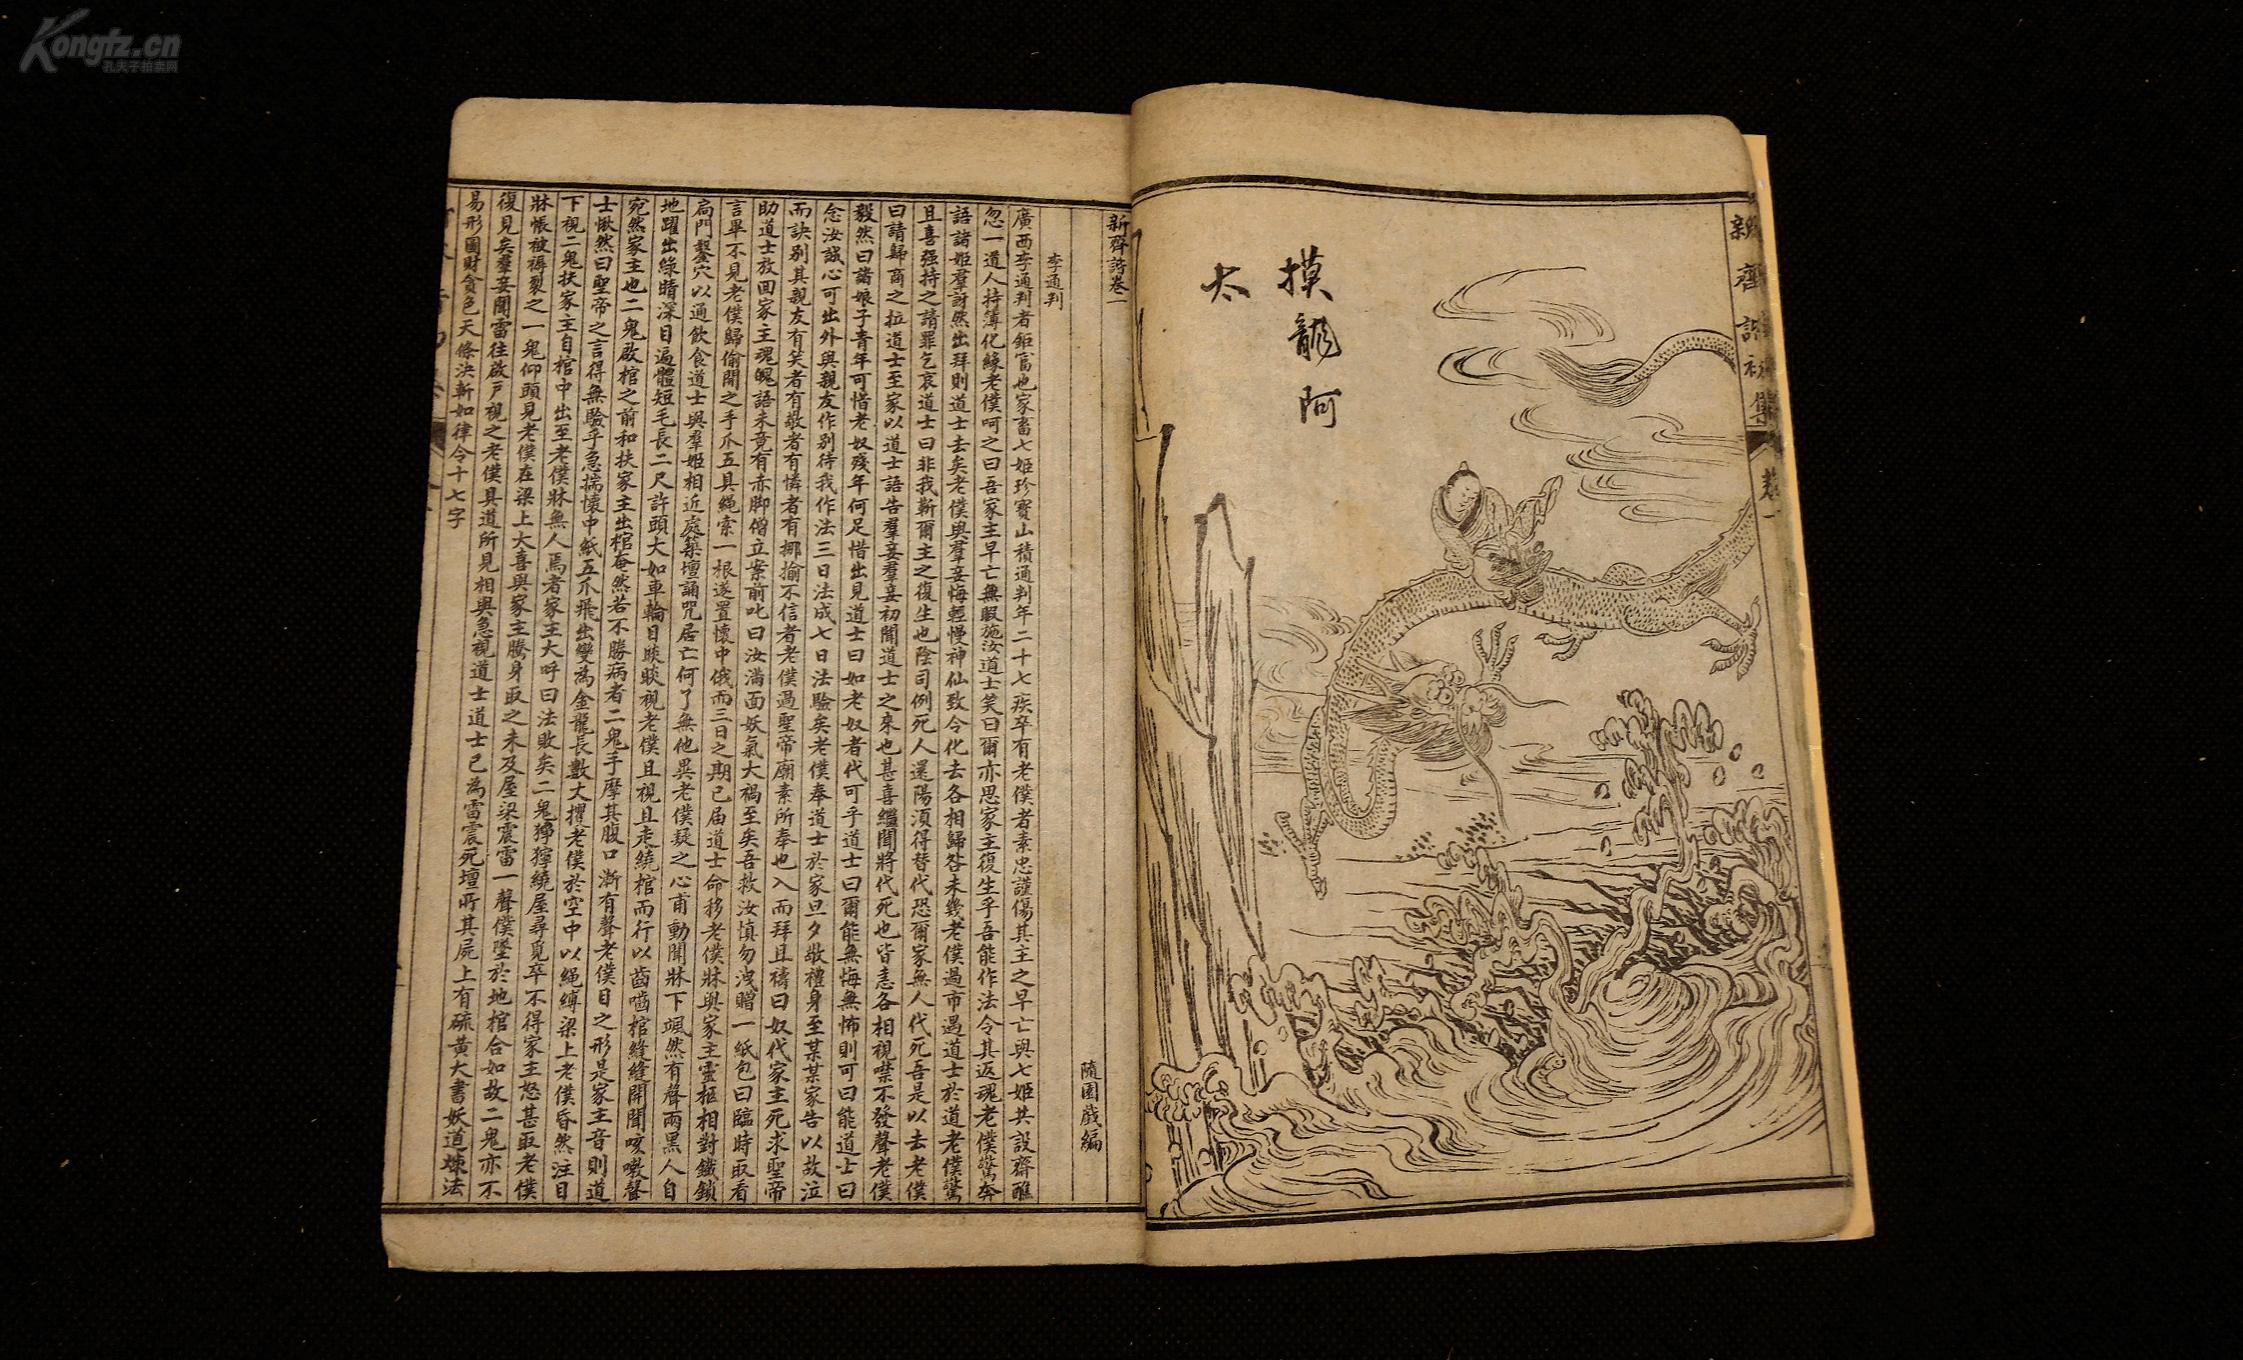 Kongfz.cn
孔夫子拍卖网
新齊諧初集
卷一
摸龍阿
太
新齊諧卷一
隨園戲編
李通判
廣西李通判者鉅富也家畜七姬珍寶山積通判年二十七疾卒有老僕者素忠謹傷其主之早亡與七姬共設齋醮
忽一道人持簿化緣老僕呵之曰吾家主早亡無暇施汝道士笑曰爾亦思家主復生乎吾能作法令其返魂老僕驚奔
語諸姬羣訝然出拜則道士去矣老僕與羣妾悔輕慢神仙致令化去各相歸咎未幾老僕過市遇道士於道老僕驚
且喜强持之請罪乞哀道士曰非我靳爾主之復生也陰司例死人還陽須得替代恐爾家無人代死吾是以去老僕
曰請歸商之拉道士至家以道士語告羣妾羣妾初聞道士之來也甚喜繼聞將代死也皆恚各相視噤不發聲老僕
毅然曰諸娘子青年可惜老奴殘年何足惜出見道士曰如老奴者代可乎道士曰爾能無悔無怖則可曰能道士曰
念汝誠心可出外與親友作别待我作法三日法成七日法驗矣老僕奉道士於家旦夕敬禮身至某某家告以故泣
而訣别其親友有笑者有敬者有憐者有揶揄不信者老僕過聖帝廟素所奉也入而拜且禱曰奴代家主死求聖帝
助道士放回家主魂魄語未竟有赤脚僧立案前叱曰汝滿面妖氣大禍至矣吾救汝慎勿洩贈一紙包曰臨時取看
言畢不見老僕歸偷開之手爪五具繩索一根遂置懷中俄而三日之期已届道士命移老僕牀與家主靈柩相對鐵鎖
扃門鑿穴以通飲食道士與羣姬相近處築壇誦咒居亡何了無他異老僕疑之心甫動聞牀下颯然有聲兩黑人自
地躍出綠睛深目遍體短毛長二尺許頭大如車輪目睒睒視老僕且視且走繞棺而行以齒嚙棺縫縫開聞咳嗽聲
宛然家主也二鬼啟棺之前和扶家主出棺奄然若不勝病者二鬼手摩其腹口漸有聲老僕目之形是家主音則道
士愀然曰聖帝之言得無驗乎急揣懷中紙五爪飛出變為金龍長數丈攫老僕於空中以繩縛梁上老僕昏然注目
下視二鬼扶家主自棺中出至老僕牀無人焉者家主大呼曰法敗矣二鬼獰獰繞屋尋覓卒不得家主怒甚取老僕
牀帳被褥裂之一鬼仰頭見老僕在梁上大喜與家主騰身取之未及屋梁震雷一聲僕墜於地棺合如故二鬼亦不
復見矣羣妾聞雷往啟戶視之老僕具道所見相與急視道士道士已為雷震死壇所其屍上有硫黄大書妖道煉法
易形圖財貪色天條決斬如律令十七字